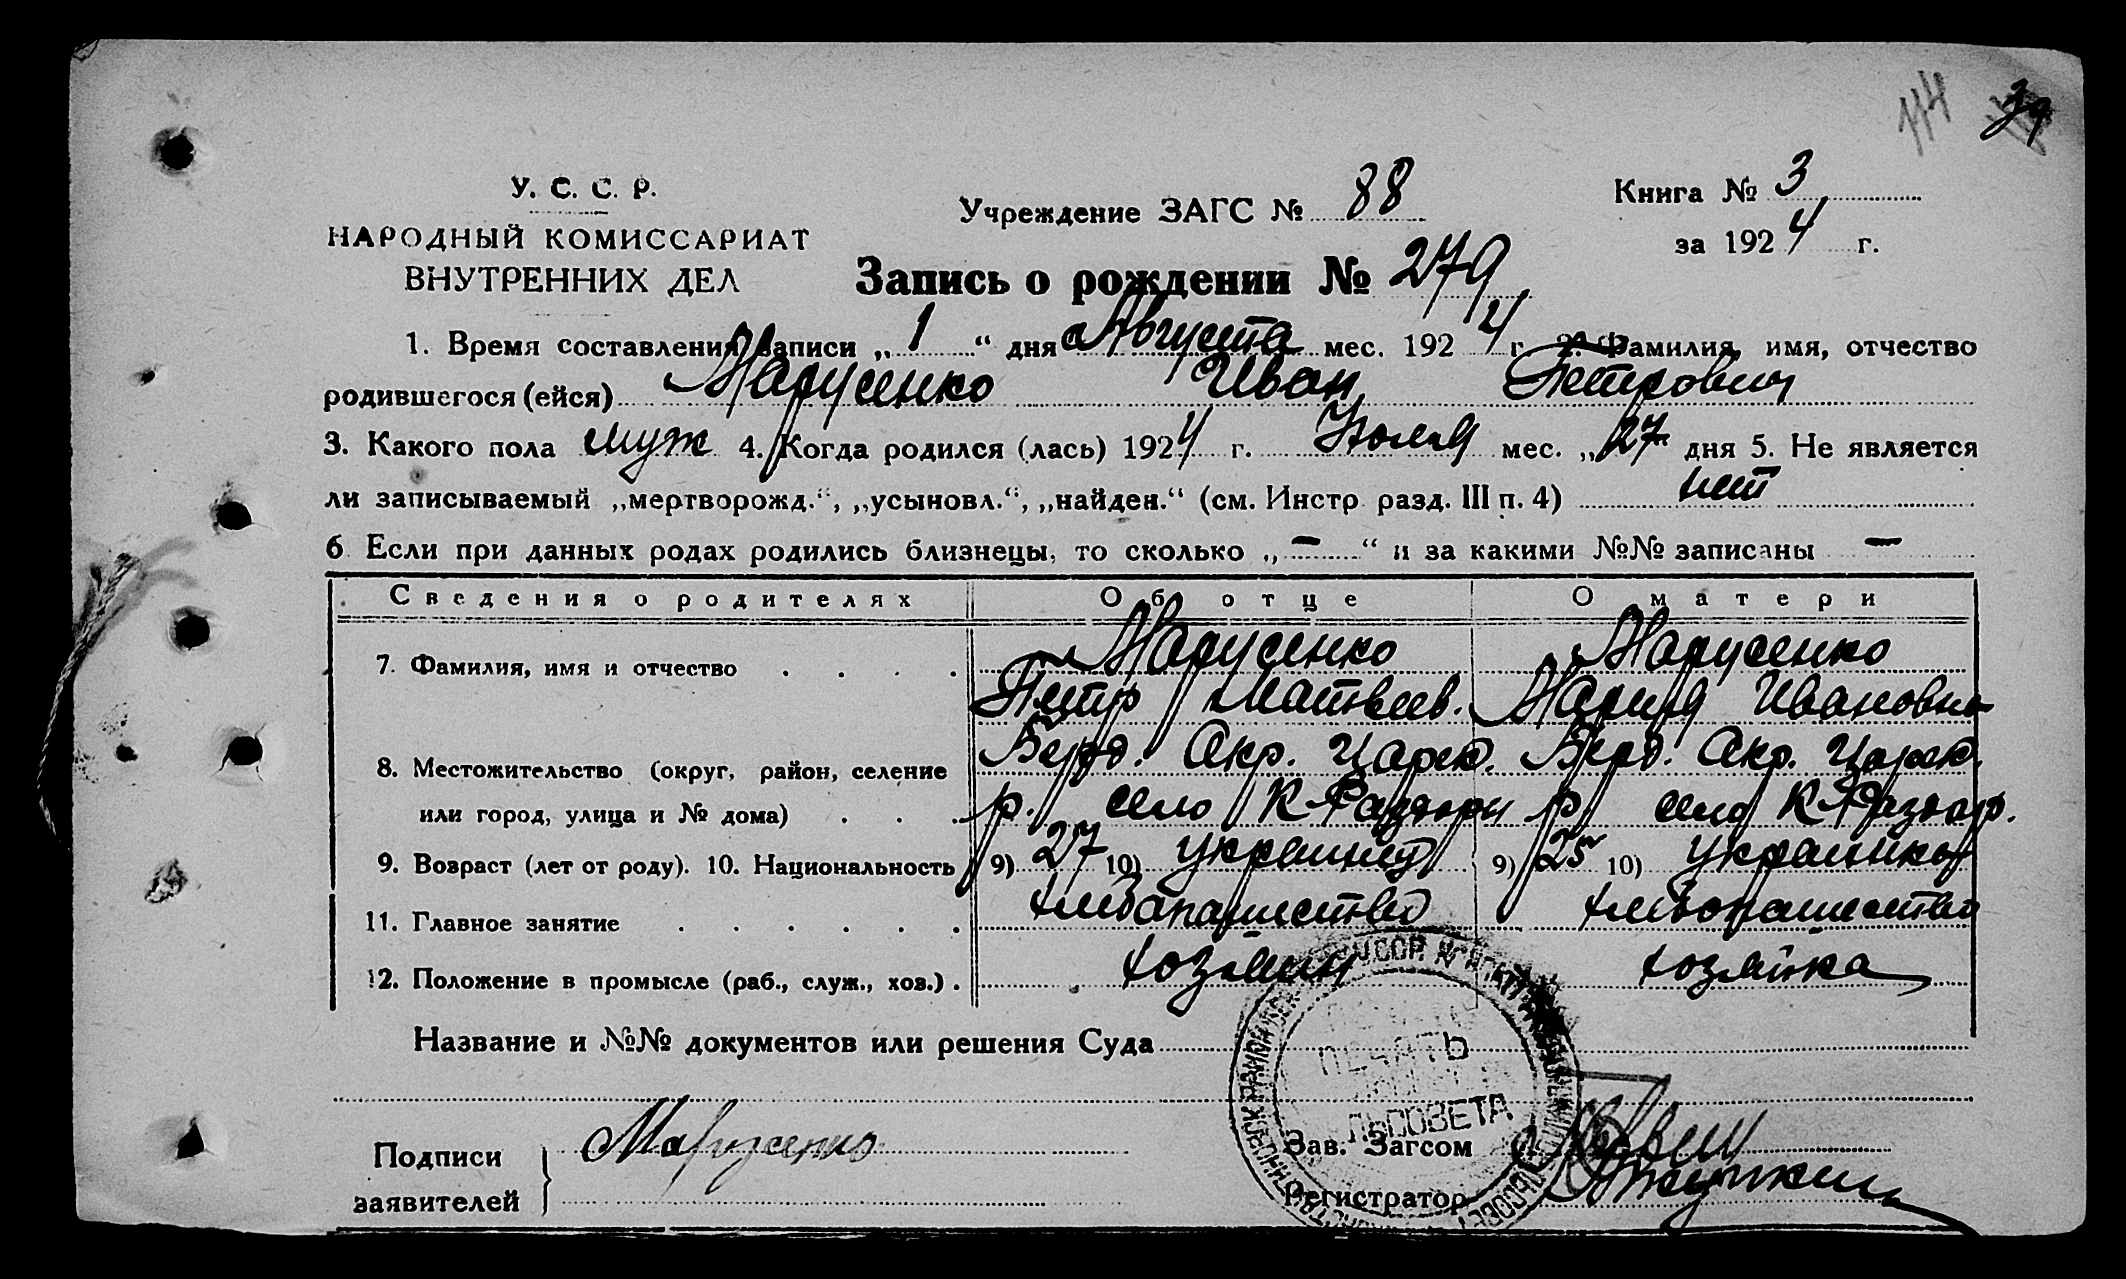 114 39
У. С. С. Р.
НАРОДНЫЙ КОМИССАРИАТ
ВНУТРЕННИХ ДЕЛ
Учреждение ЗАГС № 88
Книга № 3
за 1924 г.
Запись о рождении № 279
1. Время составления записи „1“ дня Августа мес. 1924 г. 2. Фамилия, имя, отчество
родившегося (ейся) Марусенко Иван Петрович
3. Какого пола муж 4. Когда родился (лась) 1924 г. Июля мес. „27“ дня 5. Не является
ли записываемый „мертворожд.“, „усыновл.“, „найден.“ (см. Инстр. разд. III п. 4) нет
6 Если при данных родах родились близнецы, то сколько „—“ и за какими №№ записаны —
Сведения о родителях Об отце О матери
7. Фамилия, имя и отчество Марусенко Марусенко
Петр Матвеев. Мария Ивановна
8. Местожительство (округ, район, селение Берд. Окр. Царек. Берд. Окр. Царек.
или город, улица и № дома) р. село К Раздоры р село К Раздор.
9. Возраст (лет от роду). 10. Национальность 9) 27 10) украинец 9) 25 10) украинка
11. Главное занятие хлебопашество хлебопашество
12. Положение в промысле (раб., служ., хоз.) хозяин хозяйка
Название и №№ документов или решения Суда
ПЕЧАТЬ
ЛЬСОВЕТА
Подписи
заявителей
Марусенко
Зав. Загсом
Регистратор